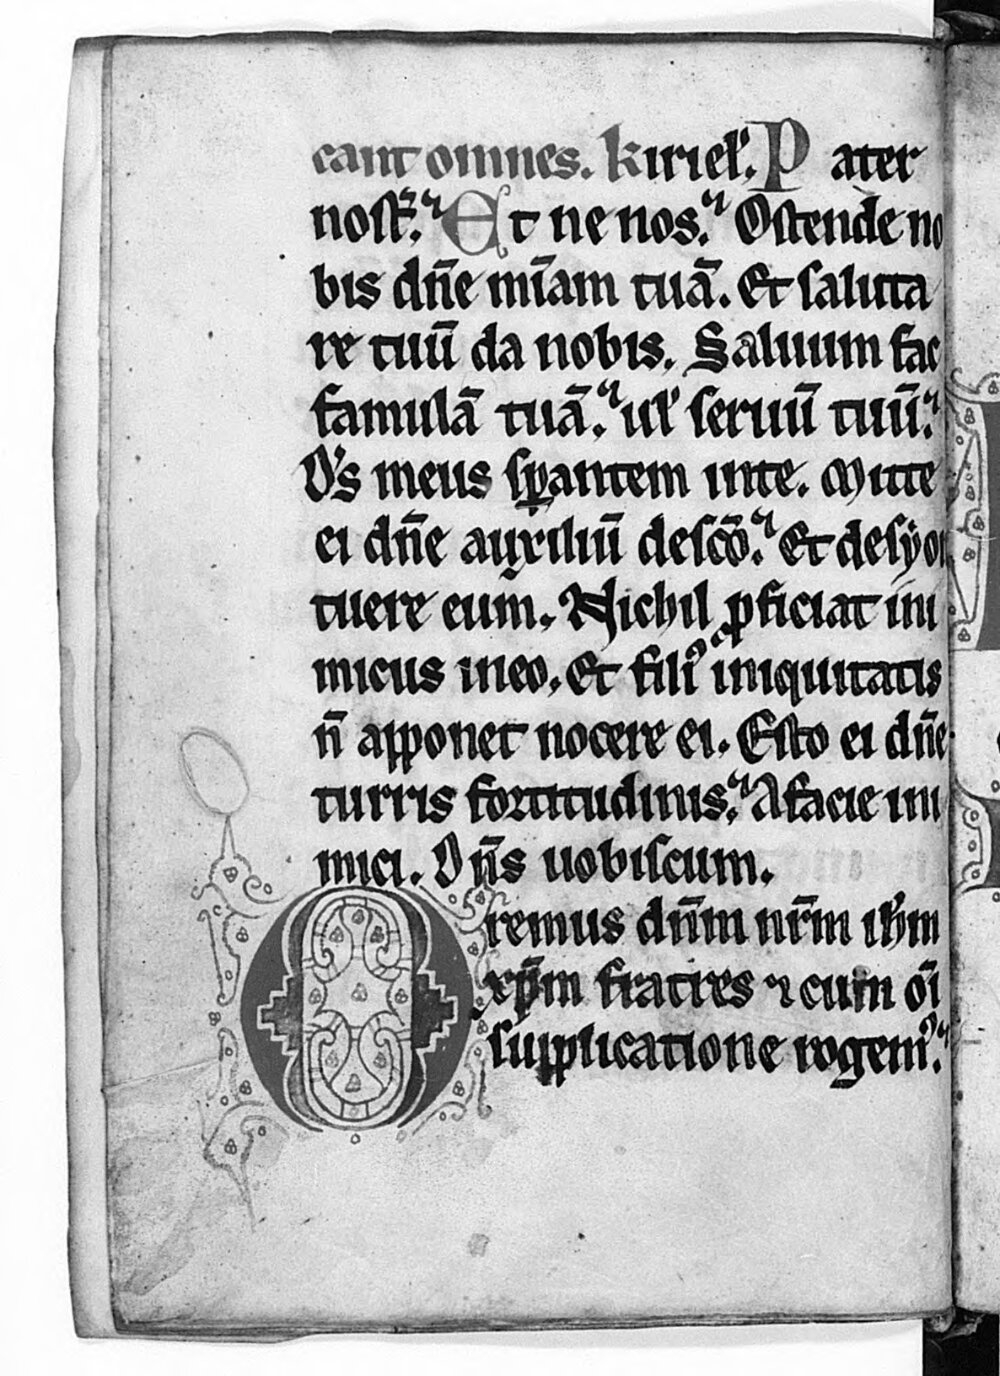 cant omnes. kiriel̾. Pater
nost̾.՚ Et ne nos.՚ Ostende no
bis dn̄e mīam tuā. Et saluta
re tuū da nobis. Saluum fac
famulā tuā.՚ ul̾ seruū tuū.՚
D's meus sꝑantem inte. Mitte
ei dn̄e auxiliū descō.՚ Et desyon
tuere eum. Nichil ꝓficiat ini
micus ineo. Et filiꝰ iniquitatis
n̄ apponet nocere ei. Esto ei dn̄e
turris fortitudinis.՚ A facie ini
mici. Dn̄s uobiscum.
Oremus dn̄m nr̄m ih̄m
xp̄m fratres ⁊ cum oī
supplicatione rogemꝰ.՚